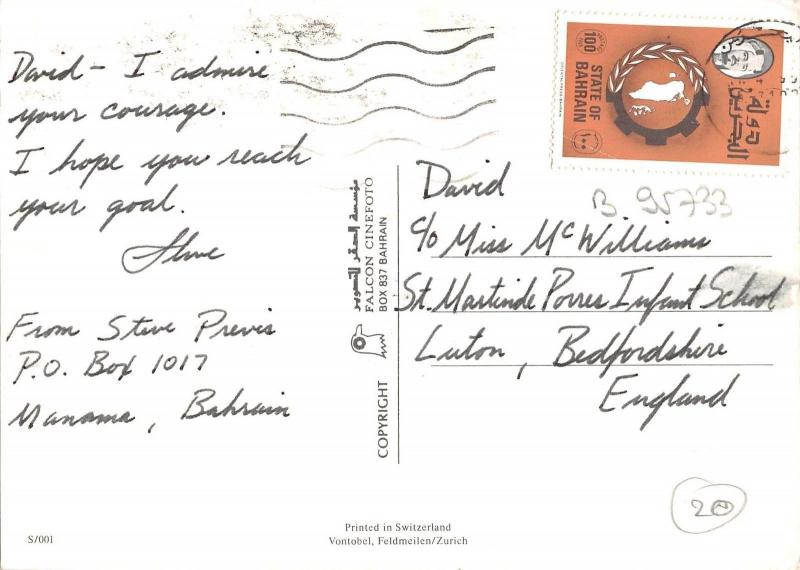 David - I admire
your courage.
I hope you reach
your goal.
Steve
From Steve Previs
P.O. Box 1017
Manama, Bahrain
S/001
مؤسسة الصقر للتصوير
FALCON CINEFOTO
BOX 837 BAHRAIN
COPYRIGHT
Printed in Switzerland
Vontobel, Feldmeilen/Zurich
100
STATE OF
BAHRAIN
دولة
البحرين
١٠٠
B 95733
David
c/o Miss McWilliams
St. Martin de Porres Infant School
Luton, Bedfordshire
England
20